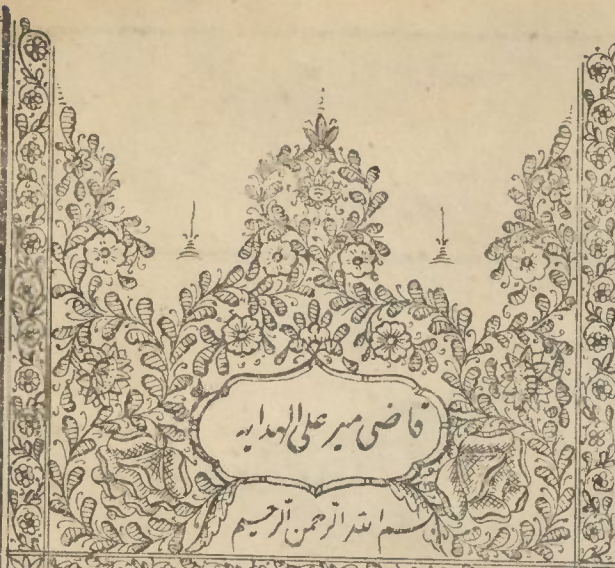 قاضی میر علی الهدایه
بسم الله الرحمن الرحیم